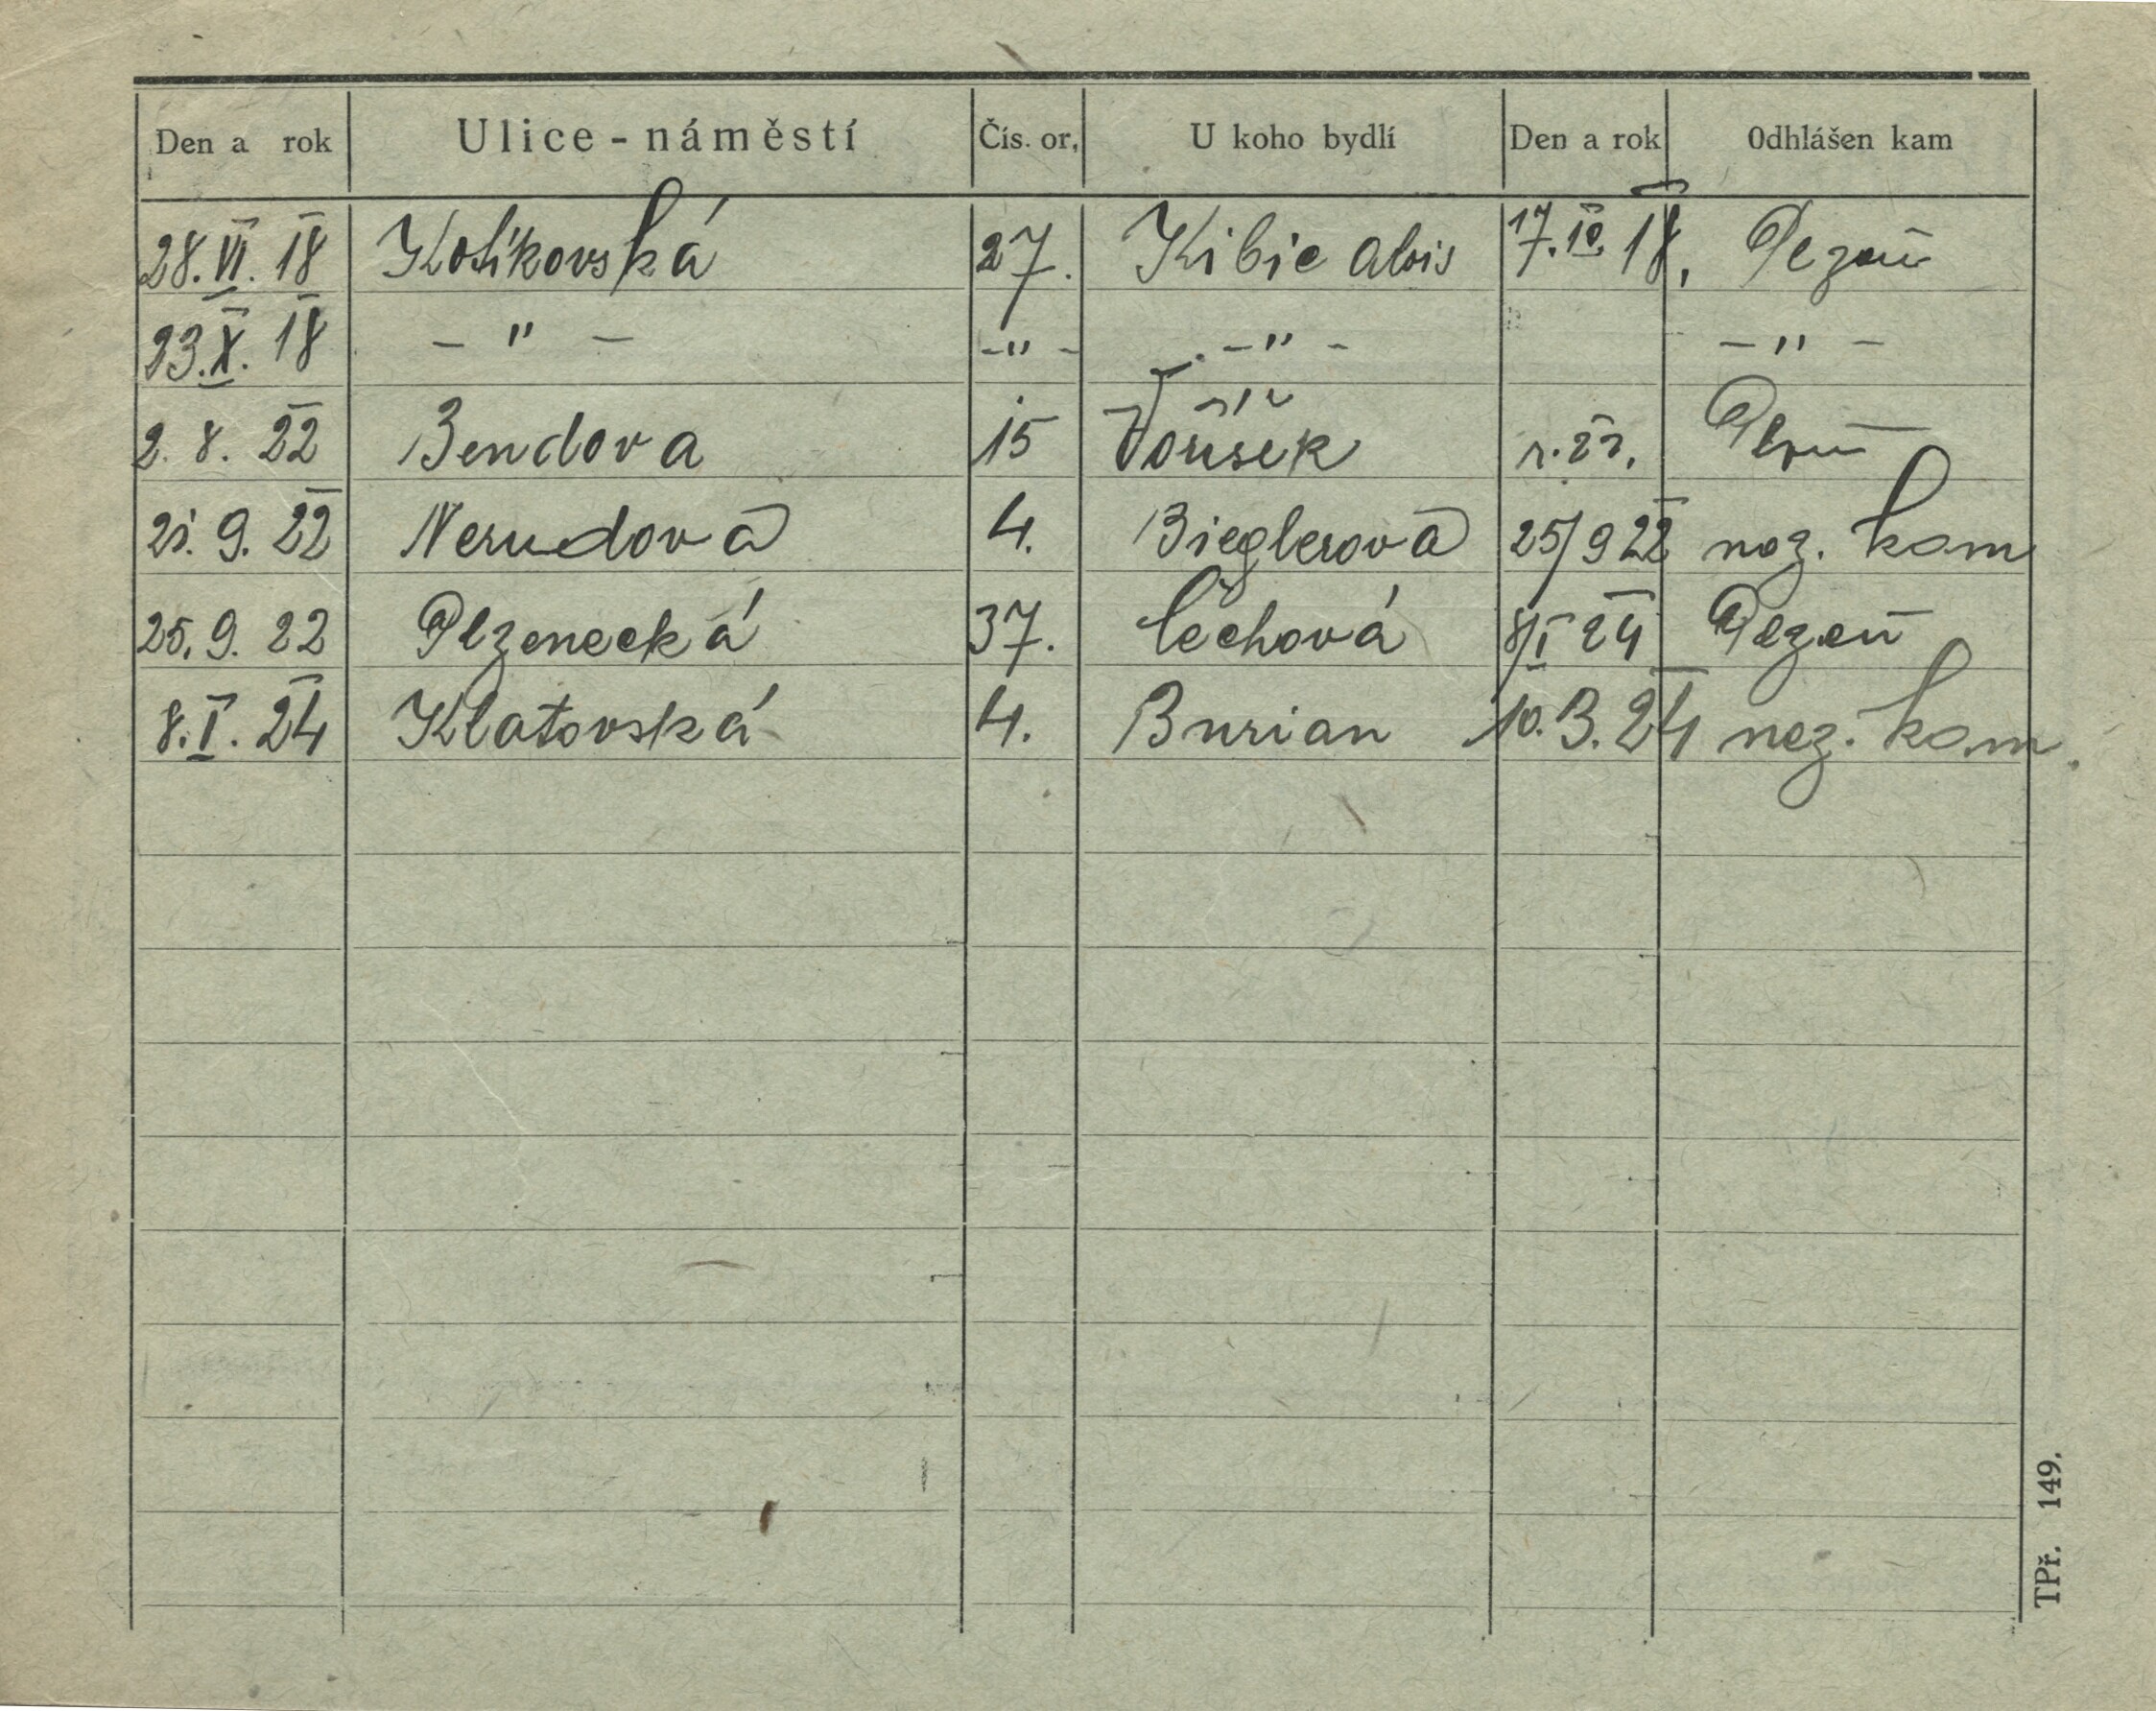 Den a rok Ulice - náměstí Čís. or. U koho bydlí Den a rok Odhlášen kam
28. VI. 18 Kotíkovská 27. Kibic Alois 17. 18, Plzeň
23. X. 18 - " - - " - - " - - " -
2. 8. 22 Bendova 15 Voříšek Plzeň
21. 9. 22 Nerudová 4. Bieglerová 25/9 22 nez. kam
25. 9. 22 Plzenecká 37. Čechová 8/I 24 Plzeň
8. I. 24 Klatovská 4. Burian 10. 3. 24 nez. kam.
TPř. 149.